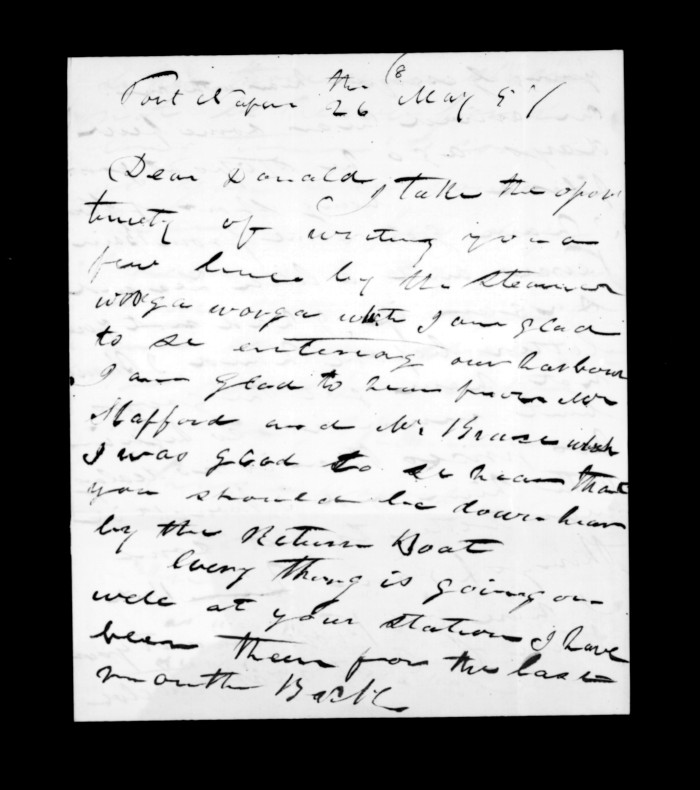 Port Napier the 26 May 57
Dear Donald I take the opor
tunety of writing you a
few lines by the Steamer
wonga wonga which I am glad
to se entering our harbour
I am glad to hear from Mr
Stafford and Mr which
I was glad to se hear that
you should be down hear
by the Return Boat
Every thing is going on
well at your station I have
been them for the last
month Back